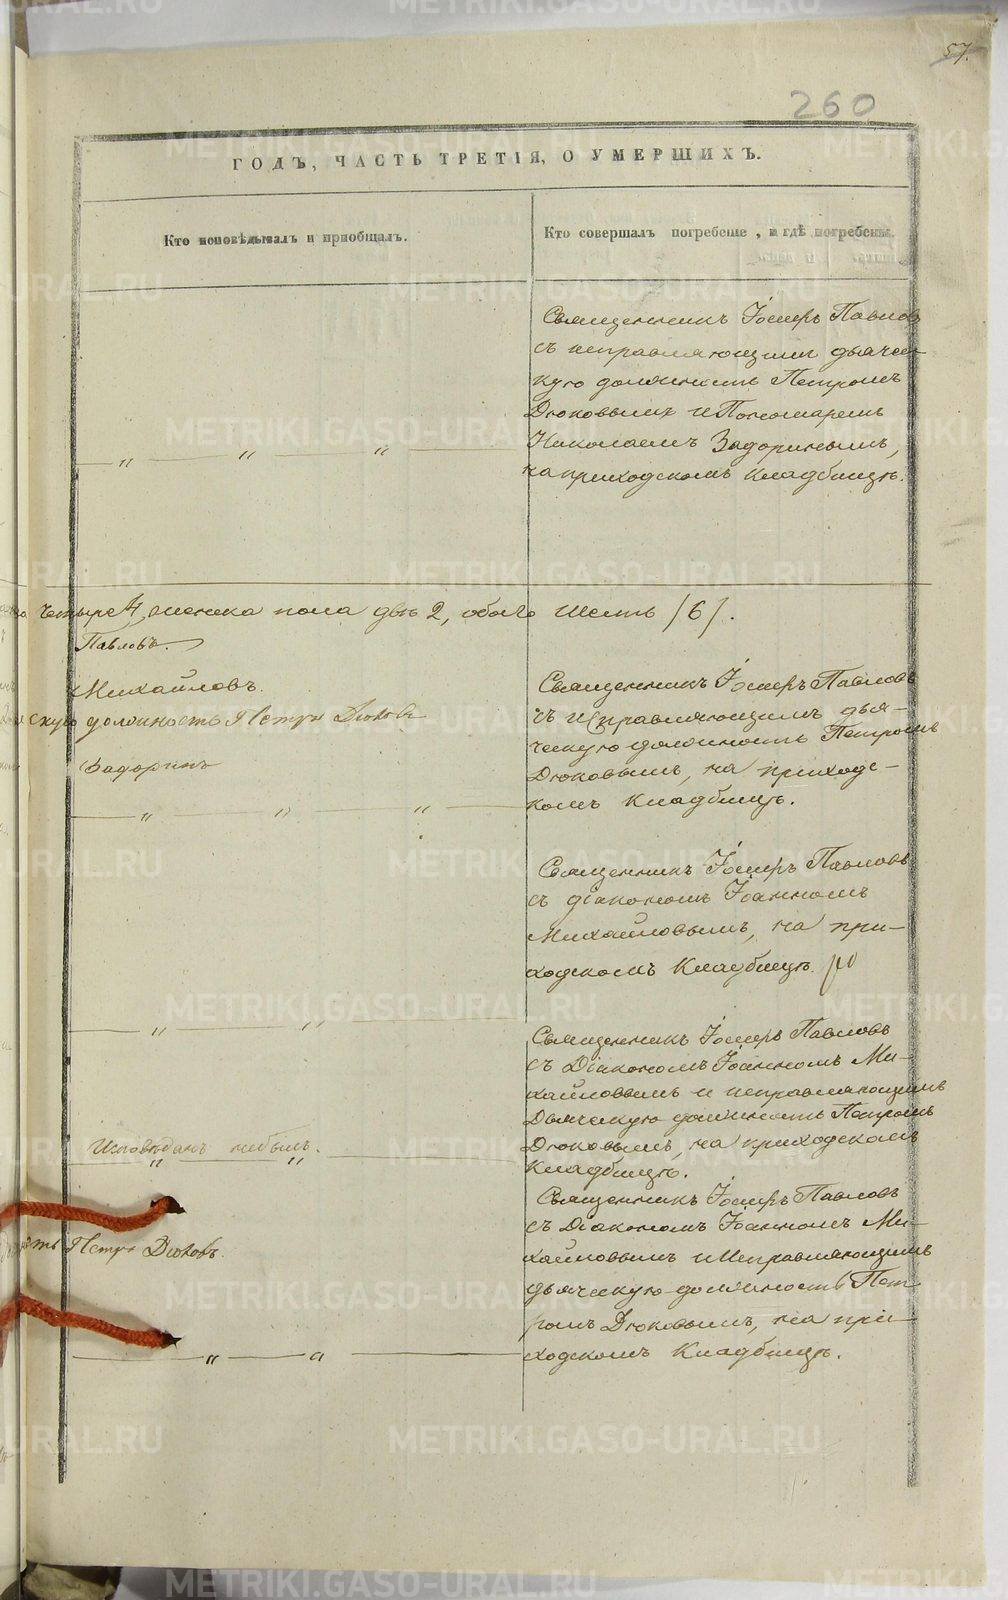 57.
260
ГОДЪ, ЧАСТЬ ТРЕТІЯ, О УМЕРШИХЪ.
Кто исповѣдывалъ и пріобщалъ.
Кто совершалъ погребеніе, и гдѣ погребены.
Священникъ Іосифъ Павловъ
съ исправляющимъ дьячес-
кую должность Петромъ
Дюковымъ и Пономаремъ
Николаемъ Задоринымъ,
на приходскомъ кладбищѣ.
— „ — „ — „ —
четыре 4, женска пола двѣ 2, обоего шесть /6/.
Павловъ.
Михайловъ.
скую должность Петръ Дюковъ
Задоринъ
— „ — „ — „ —
Священникъ Іосифъ Павловъ
съ исправляющимъ дья-
ческую должность Петромъ
Дюковымъ, на приходс-
комъ кладбищѣ.
Священникъ Іосифъ Павловъ
съ діакономъ Іоанномъ
Михайловымъ, на при-
ходскомъ кладбищѣ.
— „ — „ —
Священникъ Іосифъ Павловъ
съ Діакономъ Іоанномъ Ми-
хайловымъ и исправляющимъ
Дьяческую должность Петромъ
Дюковымъ, на приходскомъ
кладбищѣ.
Исповѣданъ небылъ.
„ „
Священникъ Іосифъ Павловъ
съ Діакономъ Іоанномъ Ми-
хайловымъ и Исправляющимъ
дьяческую должность Пет
ромъ Дюковымъ, на при-
ходскомъ кладбищѣ.
Петръ Дюковъ.
— „ — „ —
METRIKI.GASO-URAL.RU